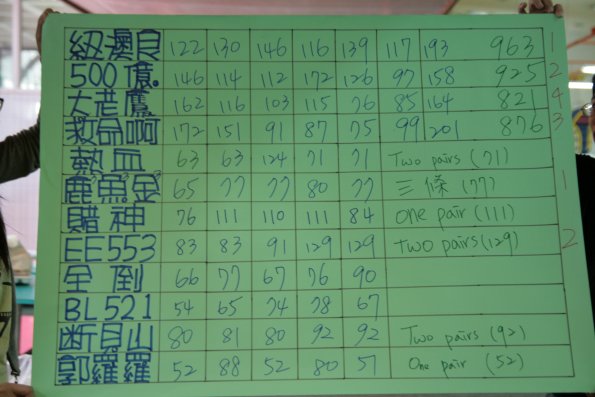 級漁貝 122 130 146 116 139 117 193 963 1
500億. 146 114 112 172 126 97 158 925 2
大老鷹 162 116 103 115 76 85 164 821 4
救命啊 172 151 91 87 75 99 201 876 3
熱血 63 63 124 71 71 Two pairs (71)
鹿"魚"金 65 77 77 80 77 三條 (77) 1
賭神 76 111 110 111 84 one pair (111)
EE553 83 83 91 129 129 two pairs (129) 2
全倒 66 77 67 76 90
BL521 54 65 74 78 67
断貝山 80 81 80 92 92 Two pairs (92)
郭羅羅 52 88 52 80 57 One pair (52)